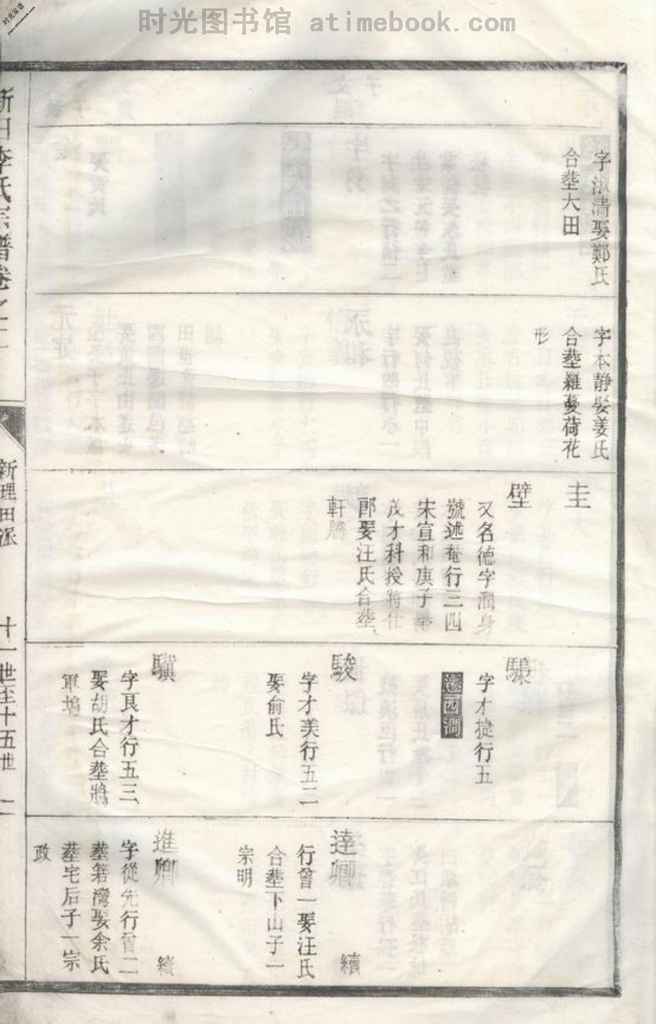 时光图书馆 atimebook.com
字淑清娶鄭氏
合塟大田
字本靜娶姜氏
合塟羅蔓荷花
形
圭
璧
又名德字潤身
號述菴行三四
宋宣和庚子舉
茂才科授將仕
郎娶汪氏合塟
軒塍
驥
字才捷行五
遷西澗
駿
字才美行五二
娶俞氏
字良才行五三
娶胡氏合塟將
軍塢
達卿
續
行曾一娶汪氏
合塟下山子一
宗明
進卿
續
字從先行曾二
塟箬灣娶余氏
塟宅后子一宗
政
新田李氏宗譜卷之二
新理田派
十一世至十五世
二